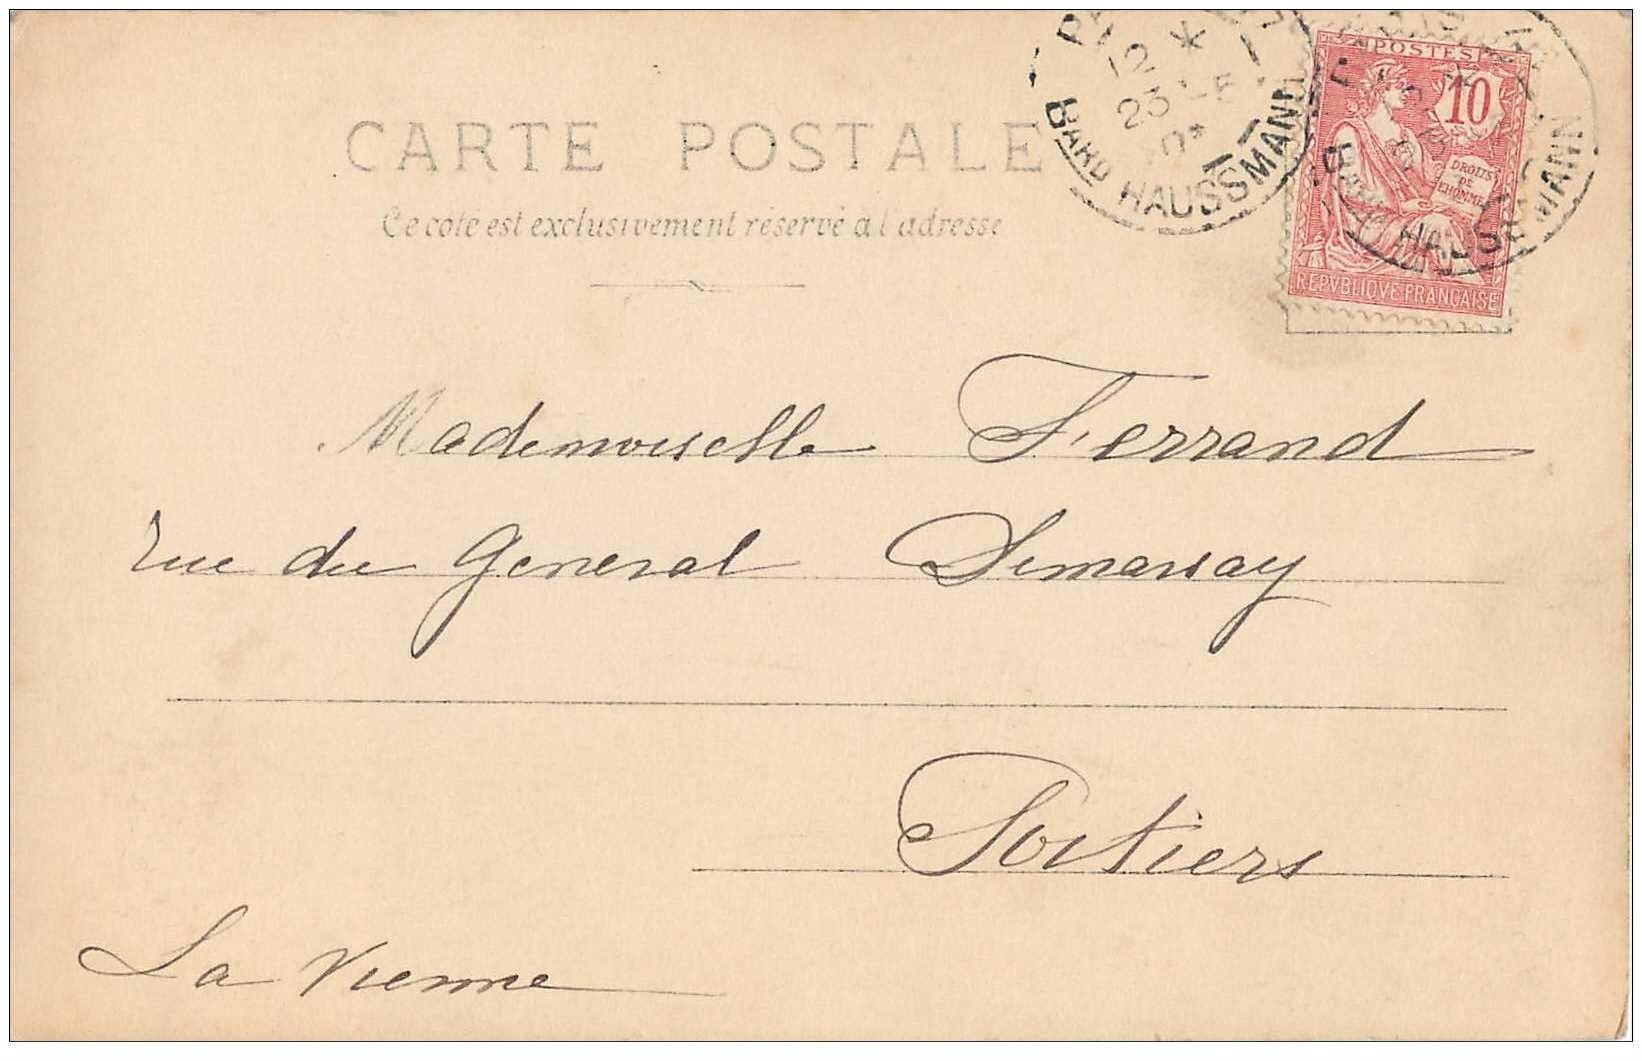 CARTE POSTALE
Ce coté est exclusivement réservé à l'adresse
12 *
23 -5
BARD HAUSSMANN
POSTES
10
DROITS
DE
L'HOMME
REPVBLIQVE FRANÇAISE
BARD HAUSSMANN
Mademoiselle Ferrand
rue du General Demarsay
Poitiers
La Vienne